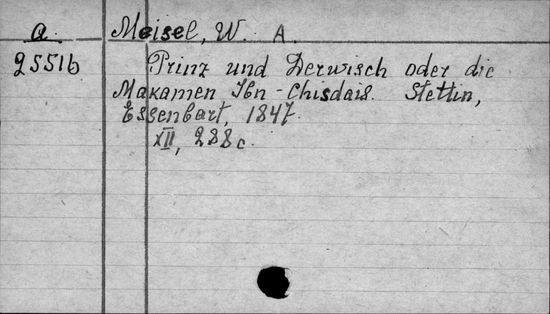 a. Meisel, W. A.
25516 Prinz und Derwisch oder die
Makamen Ibn-Chisdais. Stettin,
Essenbart, 1847.
XII, 288c.